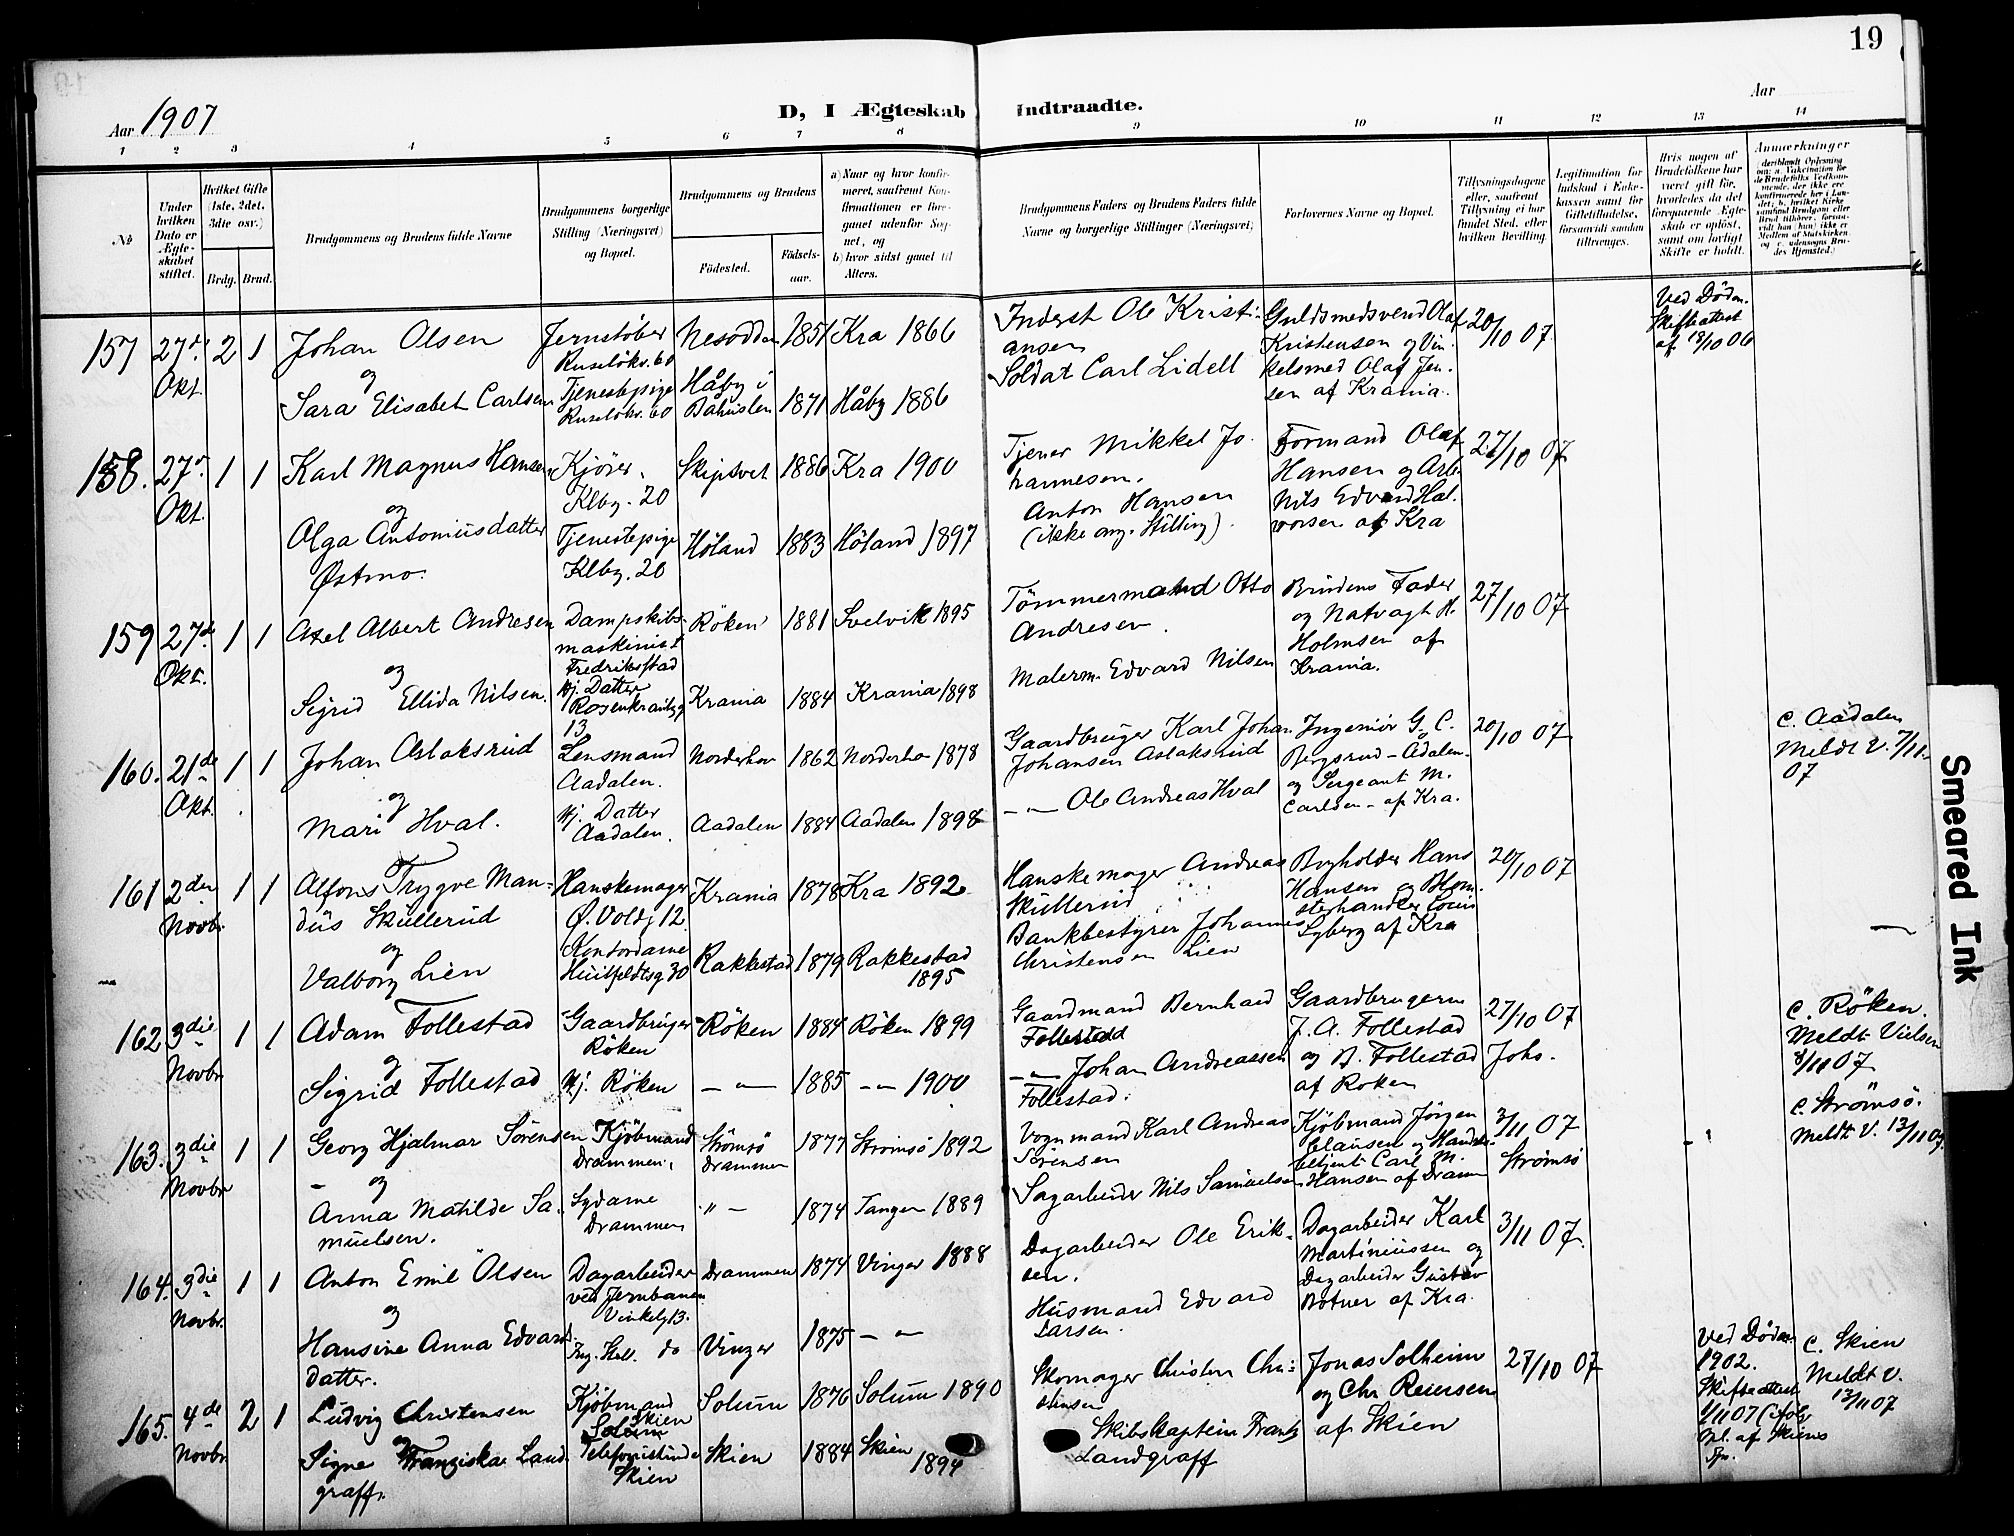 19
Aar 1907
D, I Ægteskab Indtraadte.
Aar
1 2 3 4 5 6 7 8 9 10 11 12 13 14
No
Under hvilken Dato er Ægteskabet stiftet.
Hvilket Gifte (1ste, 2det, 3dte osv.)
Brdg. Brud.
Brudgommens og Brudens fulde Navne
Brudgommens borgerlige Stilling (Næringsvei) og Bopæl.
Brudgommens og Brudens
Födested.
Födselsaar.
a) Naar og hvor konfirmeret, saafremt Konfirmationen er foregaaet udenfor Sognet, og
b) hvor sidst gaaet til Alters.
Brudgommens Faders og Brudens Faders fulde Navne og borgerlige Stillinger (Næringsvei)
Forlovernes Navne og Bopæl.
Tillysningsdagene eller, saafremt Tillysning ei har fundet Sted, efter hvilken Bevilling.
Legitimation for Indskud i Enkekassen samt for Giftetilladelse, forsaavidt saadan tiltrænges.
Hvis nogen af Brudefolkene har været gift för, hvorledes da det foregaaende Ægteskab er oplöst, samt om lovligt Skifte er holdt.
Anmærkninger
157 27de Okt. 2 1
Johan Olsen
og
Sara Elisabet Carlsen
Jernstöber
Ruselöks. 60
Tjenestepige
Ruselöks. 60
Nesodden 1851 Kra 1866
Håby i Bahuslen 1871 Håby 1886
Inderst Ole Kristiansen
Soldat Carl Lidell
Guldsmedsvend Olaf
Kristensen og Vin-
kelsmed Olaf Jen-
sen af Krania.
20/10 07
Ved Döden.
Skifteattest
af 18/10 06
158. 27de Okt. 1 1
Karl Magnus Hansen
og
Olga Antoniusdatter
Østmo.
Kjörer.
Klby. 20
Tjenestepige
Klby. 20
Skiptvet 1886 Kra 1900
Höland 1883 Höland 1897
Tjener Mikkel Jo-
hannesen.
Anton Hansen
(ikke ang. Stilling).
Formand Olaf
Hansen og Arb.
Nils Edvard Hal-
vorsen af Kra
27/10 07
159 27de Okt. 1 1
Axel Albert Andresen
og
Sigrid Ellida Nilsen.
Dampskibs-
maskinist
Fredriksstad
Hj. Datter
Rosenkrantzg
13
Röken 1881 Svelvik 1895
Krania 1884 Krania 1898
Tömmermand Otto
Andresen.
Malerm. Edvard Nilsen
Brudens Fader
og Natvagt H.
Holmsen af
Krania.
27/10 07
160. 21de Okt. 1 1
Johan Aslaksrud
og
Mari Hval.
Lensmand
Aadalen.
Hj. Datter
Aadalen.
Norderhov 1862 Norderho- 1878
Aadalen 1884 Aadalen 1898
Gaardbruger Karl Johan
Johansen Aslaksrud
— " — Ole Andreas Hval
Ingeniör G. C.
Bergsrud - Ådalen.
og Sergeant M.
Carlsen - af Kra.
20/10 07
C. Aadalen
Meldt V. 7/11-
07
161 2den Novbr. 1 1
Alfons Trygve Man-
dius Skullerud
og
Valborg Lien
Hanskemager
Ø. Voldg 12
Kontordame
Huitfeldtsg 30
Krania 1878 Kra 1892
Rakkestad 1879 Rakkestad
1895
Hanskemager Andreas
Skullerud
Bankbestyrer Johannes
Christensen Lien
Bryholder Hans
Hansen og Blom-
sterhandler Louis
Lyberg af Kra
20/10 07
162 3die Novbr 1 1
Adam Follestad
og
Sigrid Follestad
Gaardbruger
Röken
Hj. Röken
Röken 1884 Röken 1899
— " — 1885 — " — 1900
Gaardmand Bernhard
Follestad
— " — Johan Andreassen
Follestad.
Gaardbrugerne
J. A. Follestad
og B. Follestad
af Röken
27/10 07
Johs.
C. Röken.
Meldt Vielsen
8/11 07
163. 3die Novbr 1 1
Georg Hjalmar Sörensen
og
Anna Matilde Sa-
muelsen.
Kjöbmand
Drammen.
Sydame
Drammen
Strömsö
Drammen 1877 Strömsö 1892
" — 1874 Tangen 1889
Vognmand Karl Andreas
Sörensen
Sagarbeider Nils Samuelsen
Kjöbmand Jörgen
Clausen og Handels-
betjent Carl M.
Hansen af Dramn
3/11 07
Strömsö
C. Strömsö.
Meldt V. 13/11 07.
164. 3die Novbr. 1 1
Anton Emil Olsen
og
Hansine Anna Edvards-
datter.
Dagarbeider
ved Jernbanen
Vinkelg 13.
do
Drammen 1874 Vinger 1888
Vinger 1875 — " —
Dagarbeider Ole Erik-
sen.
Husmand Edvard
Larsen.
Dagarbeider Karl
Martiniussen og
Dagarbeider Gustav
Botner af Kra.
3/11 07.
165. 4de Novbr 2 1
Ludvig Christensen
og
Signe Franziska Land-
graff.
Kjöbmand
Skien
Solum
Telefonistinde
Skien
Solum 1876 Solum 1890
Skien 1884 Skien
1894
Skomager Christen Chri-
stensen
Skibskaptein Frantz
Landgraff
Jonas Solheim
og Chr Reiersen
af Skien
27/10 07
Ved Döden
1902.
Skifteattest
1/11 07
af Skiens
C. Skien
Meldt V.
13/11 07
Smeared Ink